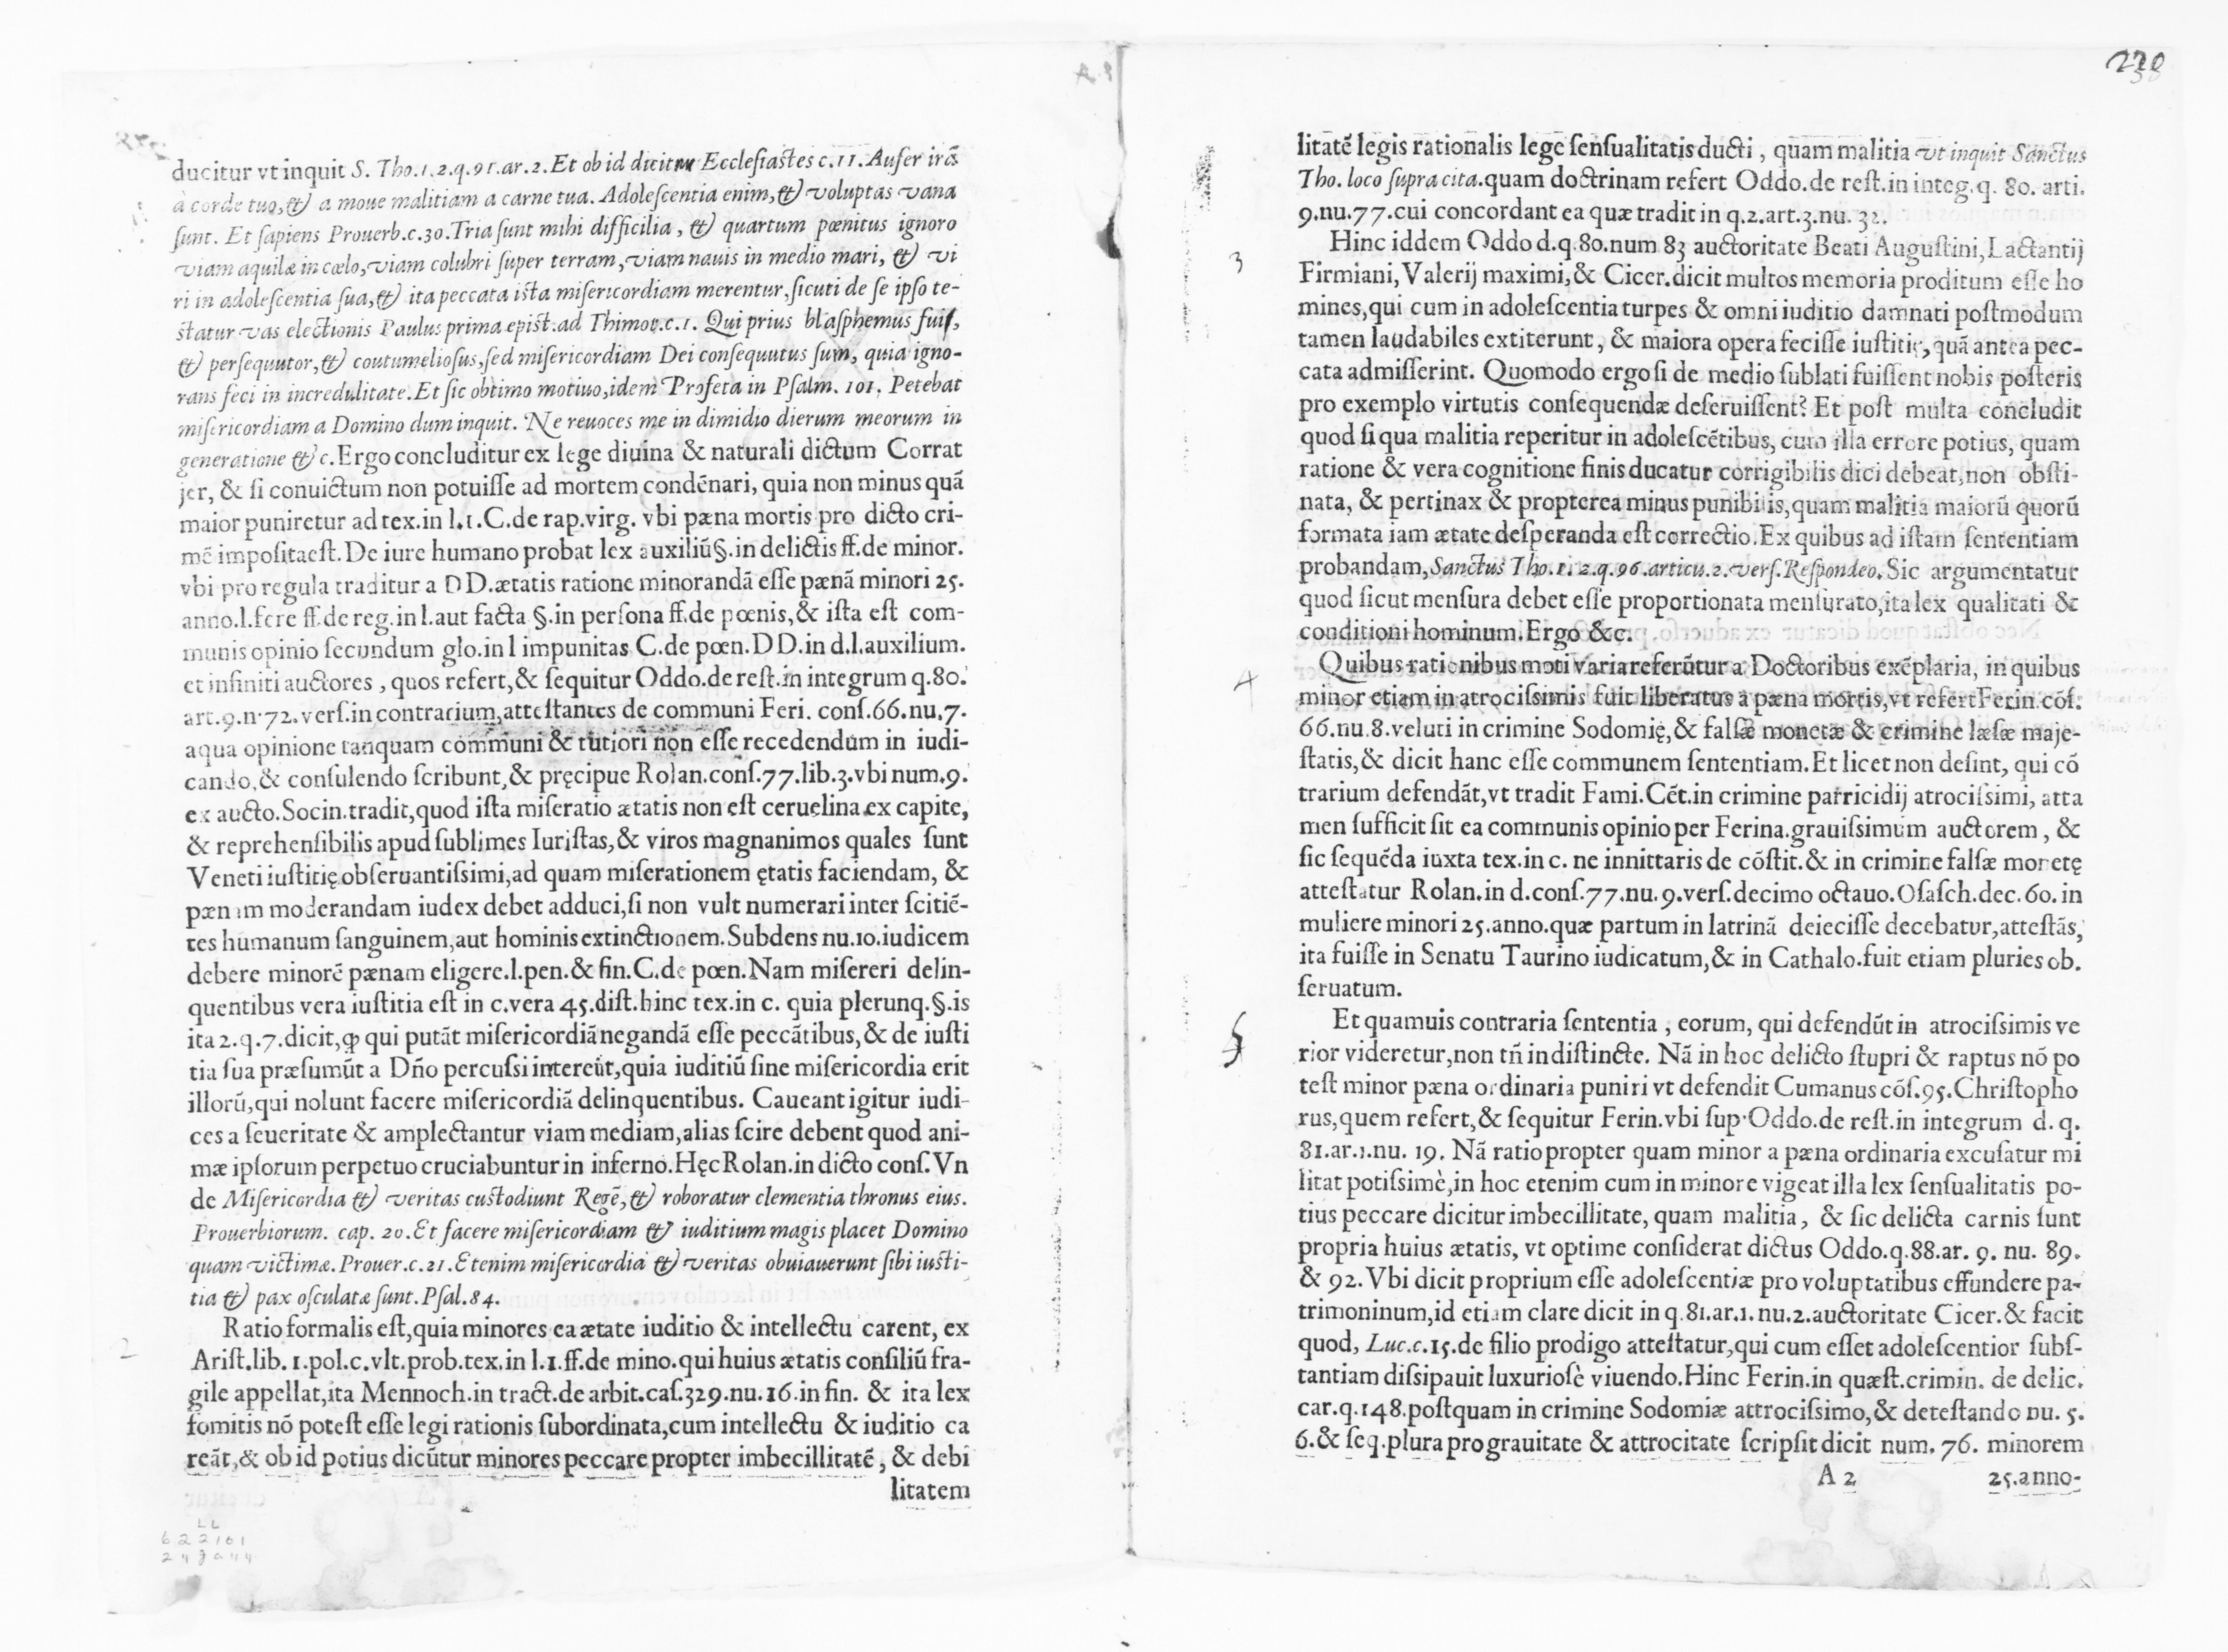 ducitur vt inquit S. Tho.1.2.q.91.ar.2.Et ob id dicitur Ecclesiastes c.11.Aufer irã
à corde tuo,& a moue malitiam a carne tua. Adolescentia enim,& voluptas vana
sunt. Et sapiens Prouerb.c.30.Tria sunt mihi difficilia, & quartum pœnitus ignoro
viam aquilæ in cœlo,viam colubri super terram,viam nauis in medio mari, & vi
ri in adolescentia sua,& ita peccata ista misericordiam merentur,sicuti de se ipso te-
statur vas electionis Paulus prima epist.ad Thimot.c.1. Qui prius blasphemus fuit,
& persequutor,& coutumeliosus,sed misericordiam Dei consequutus sum, quia igno-
rans feci in incredulitate.Et sic obtimo motiuo,idem Profeta in Psalm. 101. Petebat
misericordiam a Domino dum inquit. Ne reuoces me in dimidio dierum meorum in
generatione &c.Ergo concluditur ex lege diuina & naturali dictum Corrat
jer, & si conuictum non potuisse ad mortem condẽnari, quia non minus quã
maior puniretur ad tex.in l.1.C.de rap.virg. vbi pæna mortis pro dicto cri-
mẽ imposita est. De iure humano probat lex auxiliũ§.in delictis ff.de minor.
vbi pro regula traditur a DD.ætatis ratione minorandã esse pænã minori 25.
anno.l.fere ff.de reg.in l.aut facta §.in persona ff.de pœnis,& ista est com-
munis opinio secundum glo.in l impunitas C.de pœn.DD.in d.l.auxilium.
et infiniti auctores , quos refert,& sequitur Oddo.de rest.in integrum q.80.
art.9.n·72. vers.in contrarium,attestantes de communi Feri. cons.66.nu.7.
aqua opinione tanquam communi & tutiori non esse recedendum in iudi-
cando,& consulendo scribunt,& pręcipue Rolan.cons.77.lib.3.vbi num.9.
ex aucto.Socin.tradit,quod ista miseratio ætatis non est ceruelina ex capite,
& reprehensibilis apud sublimes Iuristas,& viros magnanimos quales sunt
Veneti iustitię obseruantissimi,ad quam miserationem ętatis faciendam, &
pænam moderandam iudex debet adduci,si non vult numerari inter scitiẽ-
tes humanum sanguinem,aut hominis extinctionem.Subdens nu.10.iudicem
debere minorẽ pænam eligere.l.pen.& fin.C.de pœn.Nam misereri delin-
quentibus vera iustitia est in c.vera 45.dist.hinc tex.in c. quia plerunq.§.is
ita 2.q.7.dicit,ꝙ qui putãt misericordiã negandã esse peccãtibus,& de iusti
tia sua præsumũt a Dño percussi intereũt,quia iuditiũ sine misericordia erit
illorũ,qui nolunt facere misericordiã delinquentibus. Caueant igitur iudi-
ces a seueritate & amplectantur viam mediam,alias scire debent quod ani-
mæ ipsorum perpetuo cruciabuntur in inferno.Hęc Rolan.in dicto cons.Vn
de Misericordia & veritas custodiunt Regẽ,& roboratur clementia thronus eius.
Prouerbiorum. cap. 20.Et facere misericordiam & iuditium magis placet Domino
quam victimæ.Prouer.c.21.Etenim misericordia & veritas obuiauerunt sibi iusti-
tia & pax osculatæ sunt.Psal.84.
2 Ratio formalis est,quia minores ea ætate iuditio & intellectu carent, ex
Arist.lib. 1.pol.c.vlt.prob.tex.in l.1.ff.de mino.qui huius ætatis consiliũ fra-
gile appellat,ita Mennoch.in tract.de arbit.cas.329.nu.16.in fin. & ita lex
fomitis nõ potest esse legi rationis subordinata,cum intellectu & iuditio ca
reãt,& ob id potius dicũtur minores peccare propter imbecillitatẽ, & debi
litatem
LL
238
litatẽ legis rationalis lege sensualitatis ducti , quam malitia vt inquit Sanctus
Tho. loco supra cita.quam doctrinam refert Oddo.de rest.in integ.q. 80. arti.
9.nu.77.cui concordant ea quæ tradit in q.2.art.3.nu. 32.
3 Hinc iddem Oddo d.q.80.num 83 auctoritate Beati Augustini,Lactantij
Firmiani,Valerij maximi,& Cicer.dicit multos memoria proditum esse ho
mines,qui cum in adolescentia turpes & omni iuditio damnati postmodum
tamen laudabiles extiterunt, & maiora opera fecisse iustitię,quã antea pec-
cata admisserint. Quomodo ergo si de medio sublati fuissent nobis posteris
pro exemplo virtutis consequendæ deseruissent? Et post multa concludit
quod si qua malitia reperitur in adolescẽtibus, cum illa errore potius, quam
ratione & vera cognitione finis ducatur corrigibilis dici debeat,non obsti-
nata, & pertinax & propterea minus punibilis,quam malitia maiorũ quorũ
formata iam ætate desperanda est correctio.Ex quibus ad istam sententiam
probandam,Sanctus Tho.1.2.q.96.articu.2.vers.Respondeo.Sic argumentatur
quod sicut mensura debet esse proportionata mensurato,ita lex qualitati &
conditioni hominum.Ergo &c.
4 Quibus rationibus moti varia referũtur a Doctoribus exẽplaria, in quibus
minor etiam in atrocissimis fuit liberatus a pæna mortis,vt refert Ferin.cõs.
66.nu.8.veluti in crimine Sodomię,& falsæ monetæ & crimine læsæ maje-
statis,& dicit hanc esse communem sententiam.Et licet non desint, qui cõ
trarium defendãt,vt tradit Fami.Cẽt.in crimine parricidij atrocissimi, atta
men sufficit sit ea communis opinio per Ferina.grauissimum auctorem, &
sic sequẽda iuxta tex.in c. ne innittaris de cõstit.& in crimine falsæ monetę
attestatur Rolan.in d.cons.77.nu.9.vers.decimo octauo.Osasch.dec.60.in
muliere minori 25.anno.quæ partum in latrinã deiecisse decebatur,attestãs,
ita fuisse in Senatu Taurino iudicatum,& in Cathalo.fuit etiam pluries ob.
seruatum.
5 Et quamuis contraria sententia , eorum, qui defendũt in atrocissimis ve
rior videretur,non tñ indistincte. Nã in hoc delicto stupri & raptus nõ po
test minor pæna ordinaria puniri vt defendit Cumanus cõs.95.Christopho
rus,quem refert,& sequitur Ferin.vbi sup·Oddo.de rest.in integrum d. q.
81.ar.1.nu. 19. Nã ratio propter quam minor a pæna ordinaria excusatur mi
litat potissimè,in hoc etenim cum in minore vigeat illa lex sensualitatis po-
tius peccare dicitur imbecillitate, quam malitia, & sic delicta carnis sunt
propria huius ætatis, vt optime considerat dictus Oddo.q.88.ar. 9. nu. 89.
& 92. Vbi dicit proprium esse adolescentiæ pro voluptatibus effundere pa-
trimoninum,id etiam clare dicit in q.81.ar.1. nu.2.auctoritate Cicer.& facit
quod, Luc.c.15.de filio prodigo attestatur,qui cum esset adolescentior subs-
tantiam dissipauit luxuriosè viuendo.Hinc Ferin.in quæst.crimin. de delic.
car.q.148.postquam in crimine Sodomiæ attrocissimo,& detestando nu. 5.
6.& seq.plura pro grauitate & attrocitate scripsit dicit num. 76. minorem
A 2 25.anno-